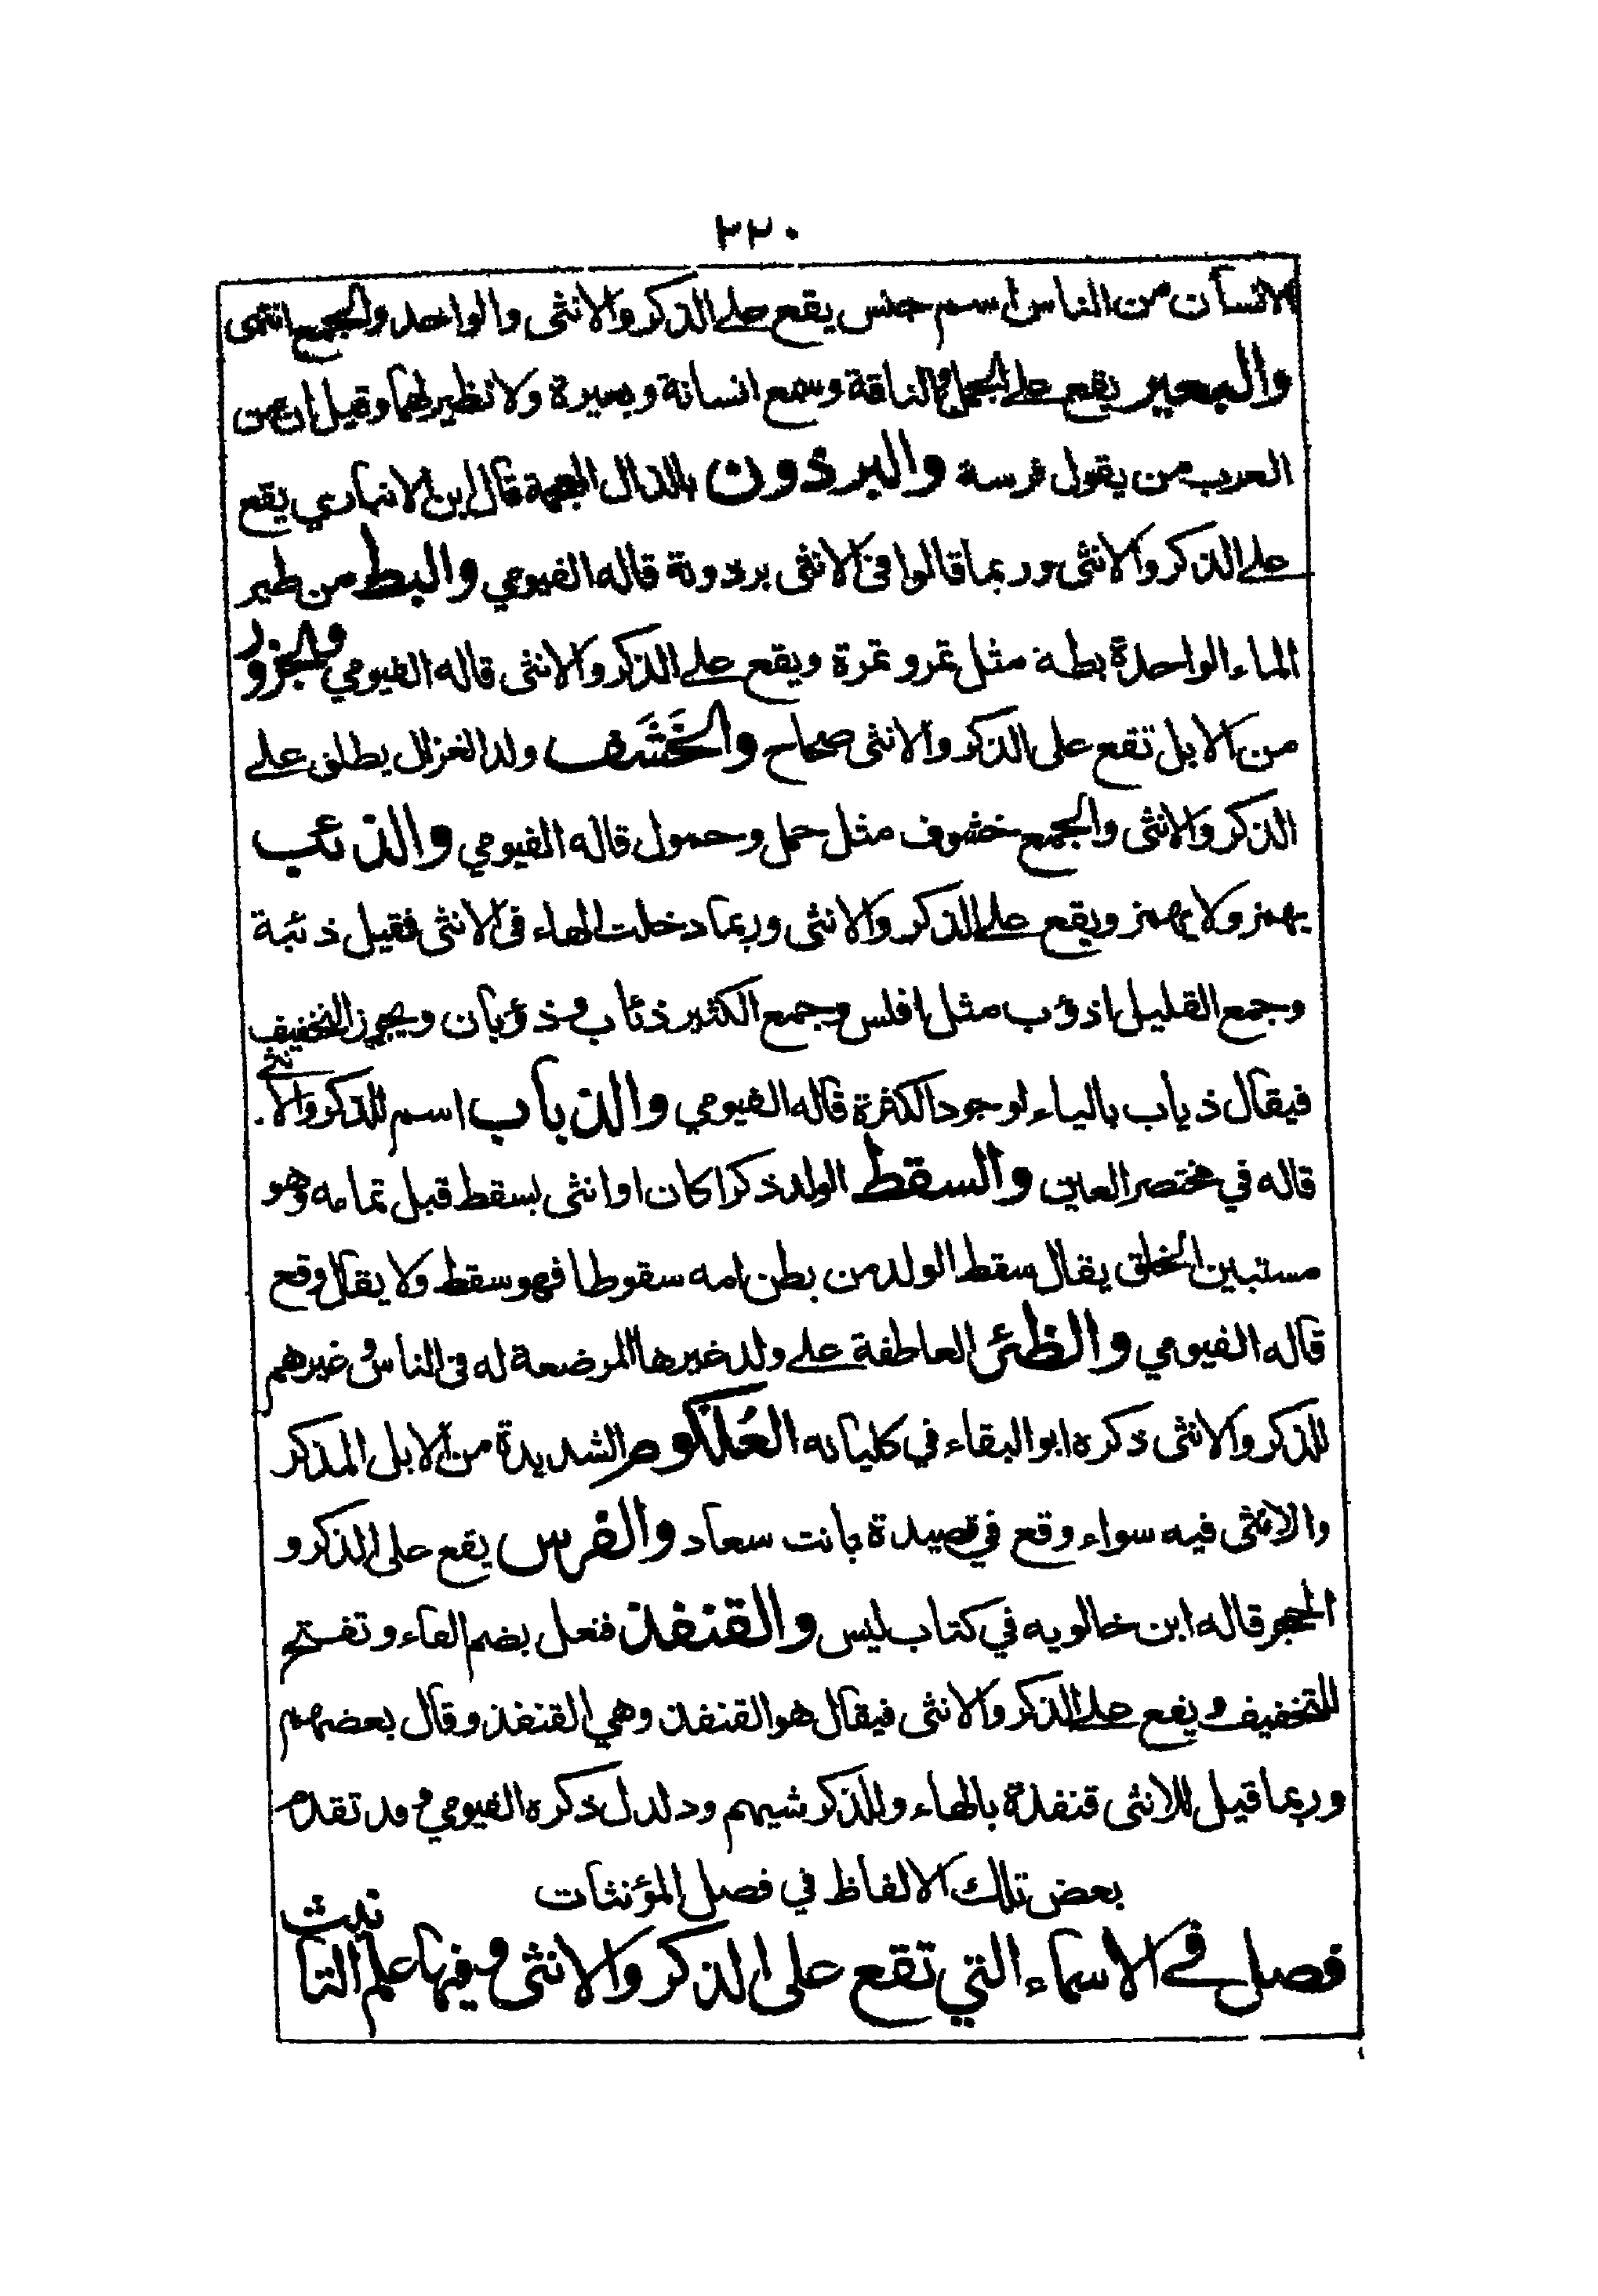 ٣٢٠
الانسان من الناس اسم جنس يقع على الذكر والانثى والواحد والجمع انتهى
والبعير يقع على الجمل والناقة وسمع انسانة وبعيرة ولا نظير لهما وقيل ان من
العرب من يقول فرسة والبرذون بالذال المعجمة قال ابن الانباري يقع
على الذكر والانثى وربما قالوا في الانثى برذونة قاله الفيومي والبط من طير
الماء الواحدة بطة مثل تمر وتمرة ويقع على الذكر والانثى قاله الفيومي والجزور
من الابل تقع على الذكر والانثى صحاح والخَشَف ولد الغزال يطلق على
الذكر والانثى والجمع خشوف مثل حمل وحمول قاله الفيومي والذئب
يهمز ولا يهمز ويقع على الذكر والانثى وربما دخلت الهاء في الانثى فقيل ذئبة
وجمع القليل اذؤب مثل افلس وجمع الكثير ذئاب وذؤبان ويجوز التخفيف
فيقال ذياب بالياء لوجود الكثرة قاله الفيومي والذباب اسم للذكر والانثى
قاله في مختصر العين والسقط الولد ذكرا كان او انثى يسقط قبل تمامه وهو
مستبين الخلق يقال سقط الولد من بطن امه سقوطا فهو سقط ولا يقال وقع
قاله الفيومي والظئر العاطفة على ولد غيرها المرضعة له في الناس وغيرهم
للذكر والانثى ذكره ابو البقاء في كلياته العُلكوم الشديدة من الابل المذكر
والانثى فيه سواء وقع في قصيدة بانت سعاد والفرس يقع على الذكر و
الحجر قاله ابن خالويه في كتاب ليس والقنفذ فنعل بضم الفاء وتفتح
للتخفيف ويقع على الذكر والانثى فيقال هو القنفذ وهي القنفذ وقال بعضهم
وربما قيل للانثى قنفذة بالهاء وللذكر شيهم ودلدل ذكره الفيومي وقد تقدم
بعض تلك الالفاظ في فصل المؤنثات
فصل في الاسماء التي تقع على الذكر والانثى وفيها علم التانيث